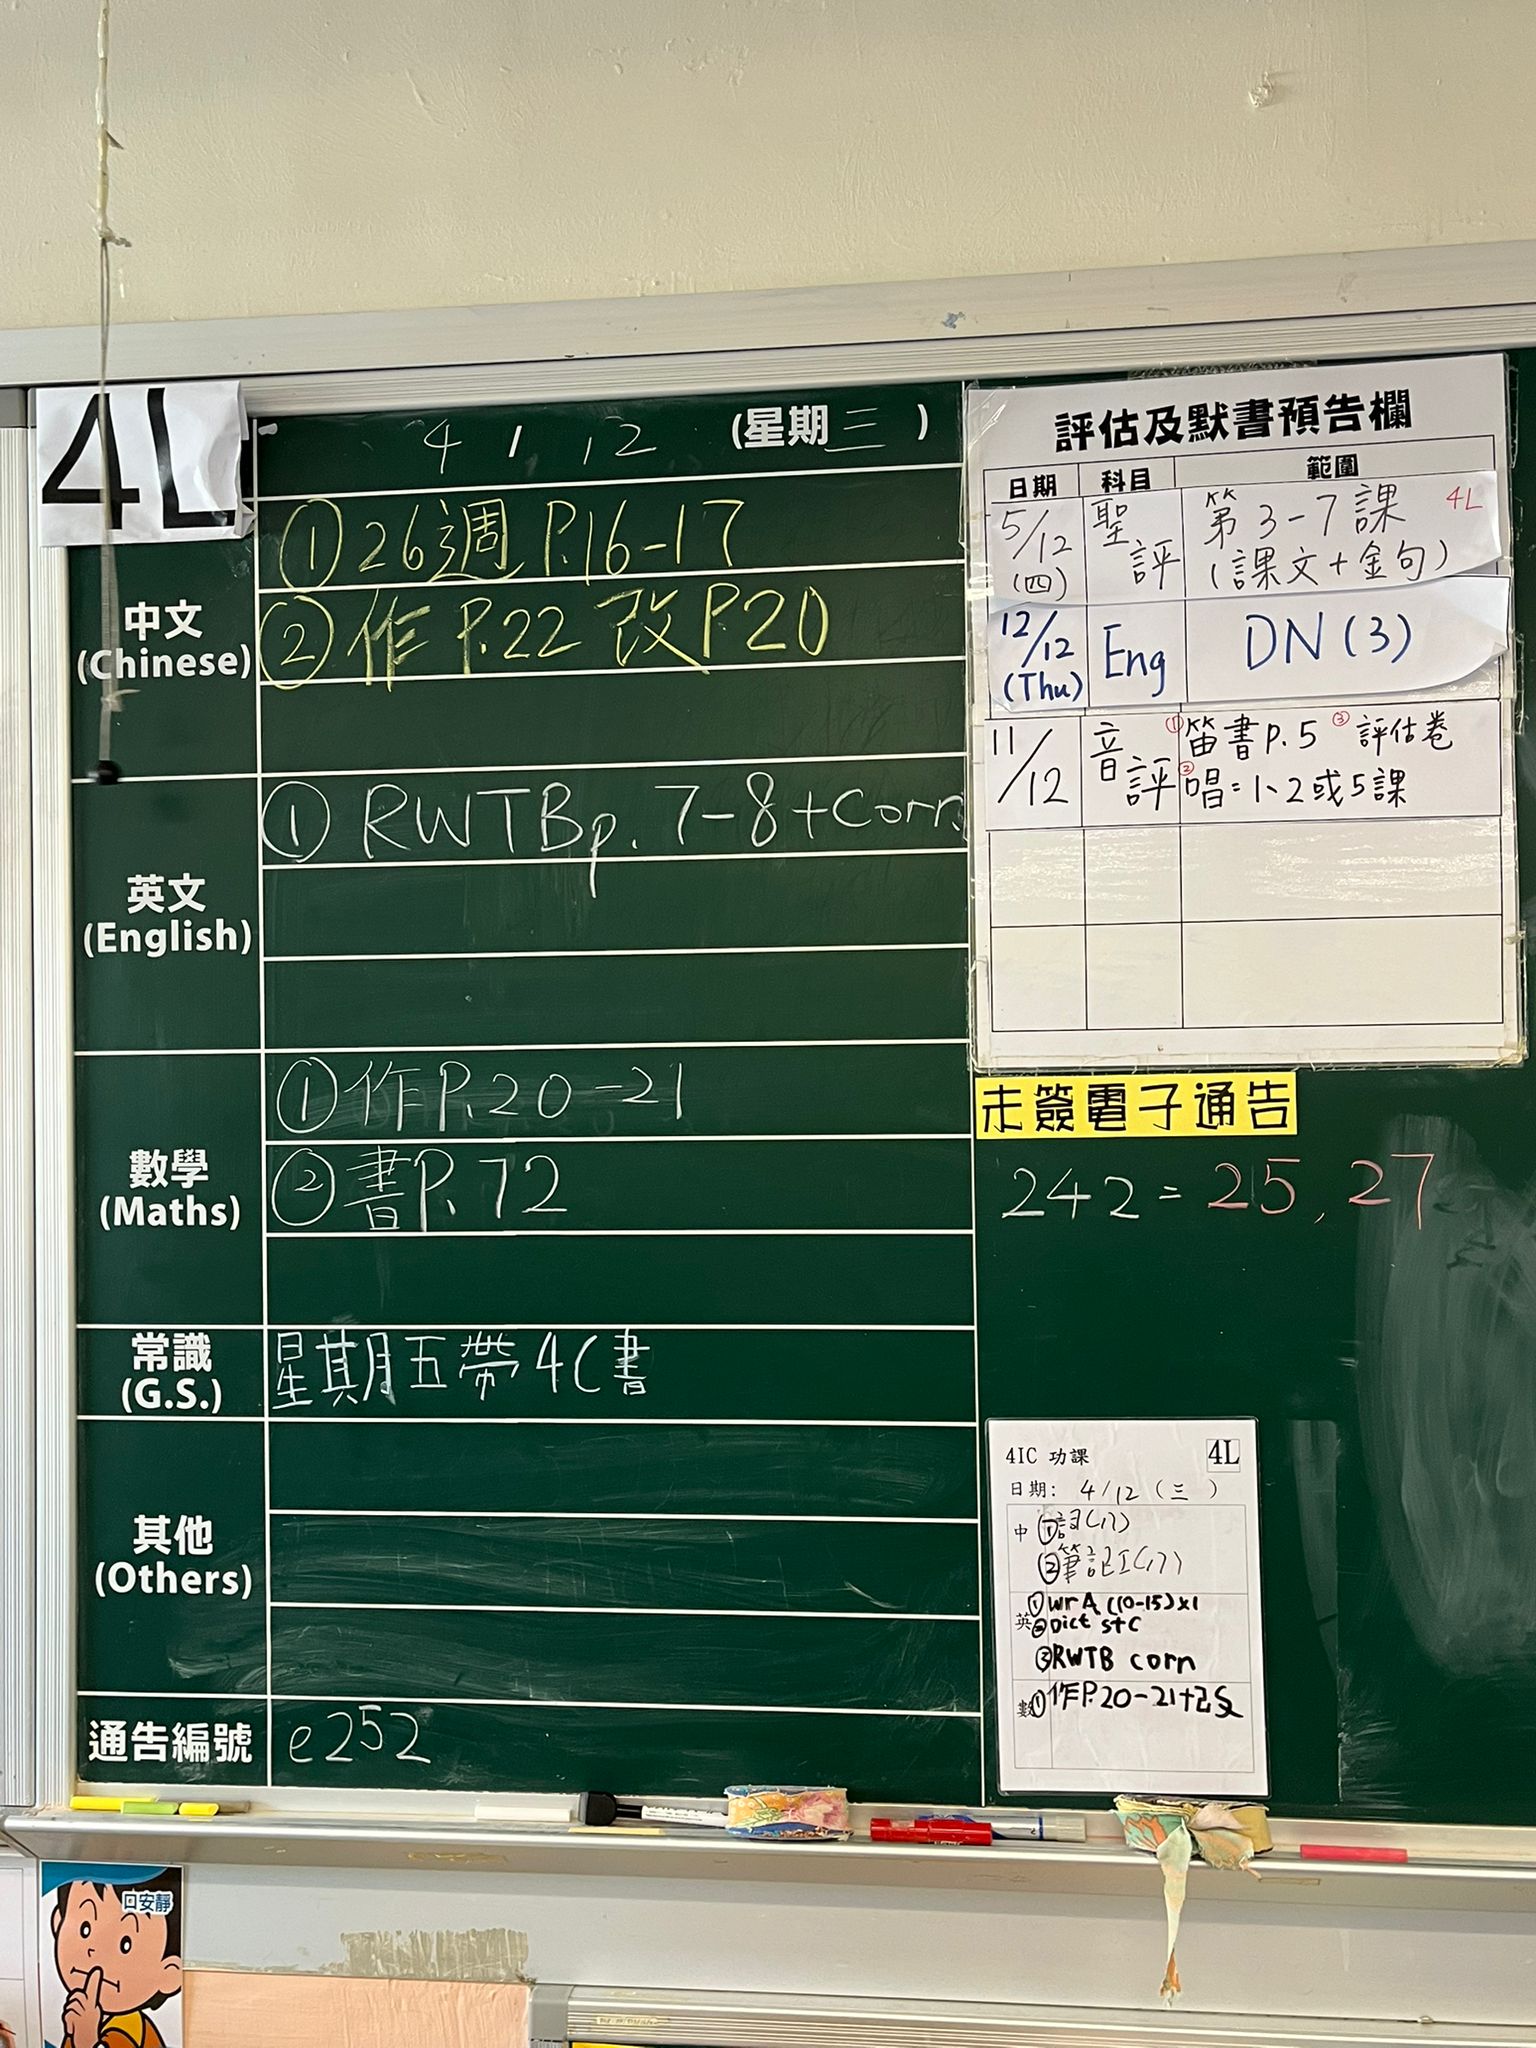 4L
4 / 12 (星期三)
中文
(Chinese)
① 26週 P.16-17
② 作 P.22 改 P.20
英文
(English)
① RWTB p. 7-8 + corn.
數學
(Maths)
① 作P.20-21
② 書P.72
常識
(G.S.)
星期五帶4C書
其他
(Others)
通告編號
e252
評估及默書預告欄
日期 科目 範圍
5/12 (四) 聖評 第3-7課 4L
(課文+金句)
12/12 (Thu) Eng DN (3)
11/12 音評 ①笛書P.5 ③評估卷
②唱:1、2或5課
未簽電子通告
242 = 25, 27
4IC 功課 4L
日期: 4/12 (三)
中 ①詞(17)
②筆記工(17)
英 ① Wr A (10-15)x1
② Dict S+C
③ RWTB corn
數 ① 作P.20-21+改
口安靜